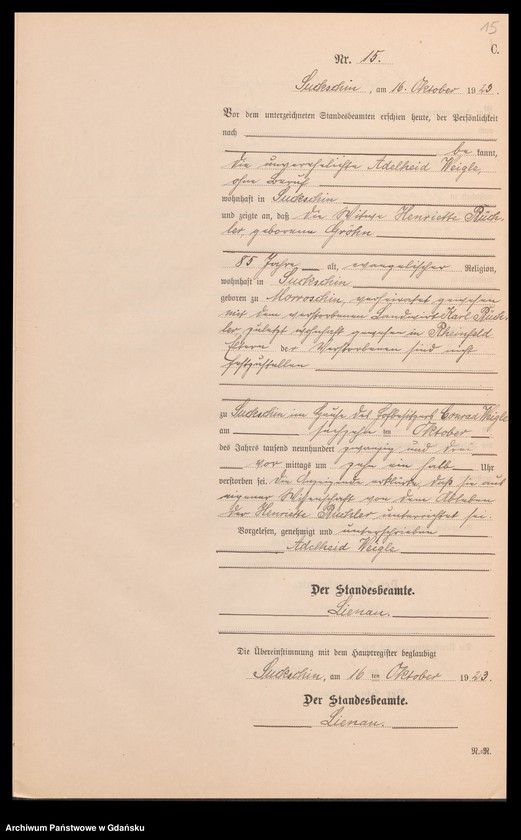 15
C.
Nr. 15.
Suckschin, am 16. Oktober 1923.
Vor dem unterzeichneten Standesbeamten erschien heute, der Persönlichkeit
nach
be kannt,
die unverehelichte Adelheid Weigle,
ohne Beruf
wohnhaft in Suckschin
und zeigte an, daß die Witwe Henriette Rüch-
ler, geborene Gröhn
85 Jahre alt, evangelischer Religion,
wohnhaft in Suckschin
geboren zu Morroschin, verheiratet gewesen
mit dem verstorbenen Landwirt Karl Rüch-
ler zuletzt wohnhaft gewesen in Rheinfeld
Eltern der Verstorbenen sind nicht
festzustellen
zu Suckschin im Hause des Hofbesitzers Conrad Weigle
am sechzehn ten Oktober
des Jahrs tausend neunhundert zwanzig und drei
vor mittags um zehn ein halb Uhr
verstorben sei. Die Anzeigende erklärte, daß sie aus
eigener Wissenschaft von dem Ableben
der Henriette Rüchler unterrichtet sei.
Vorgelesen, genehmigt und unterschrieben
Adelheid Weigle
Der Standesbeamte.
Lienau.
Die Übereinstimmung mit dem Hauptregister beglaubigt
Suckschin, am 16 ten Oktober 1923.
Der Standesbeamte.
Lienau.
N.-R.
Archiwum Państwowe w Gdańsku